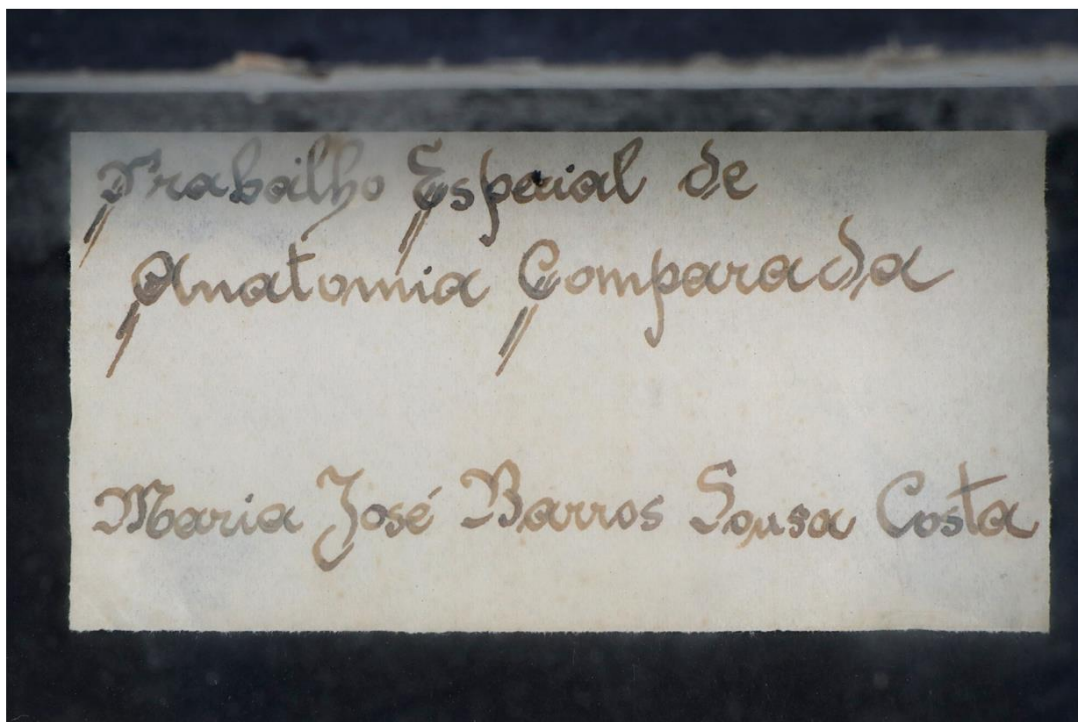 Trabalho Especial de
Anatomia Comparada
Maria José Barros Sousa Costa